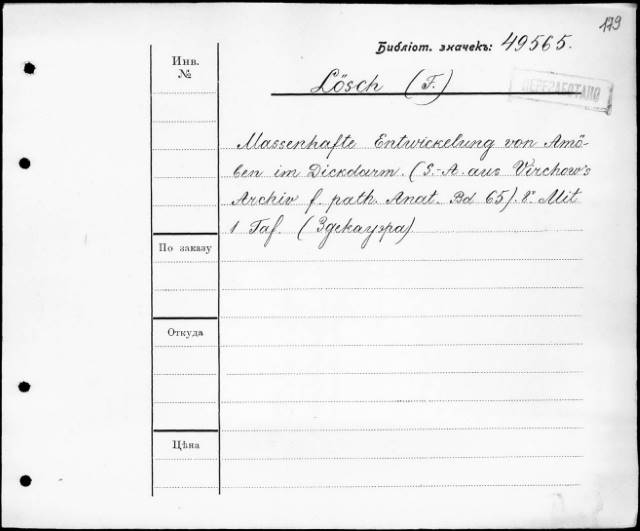 179
Библіот. значекъ: 49565.
Инв.
№
Lösch (F.)
ПЕРЕРАБОТАНО
Massenhafte Entwickelung von Amö-
ben im Dickdarm. (S.-A. aus Virchow's
Archiv f. path. Anat. Bd 65). 8° Mit
1 Taf. (Здекауэра)
По заказу
Откуда
Цѣна